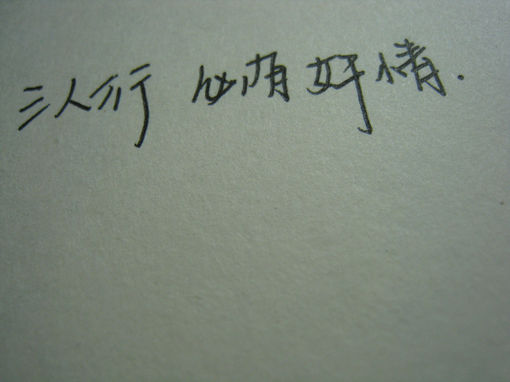 三人行 必有奸情.